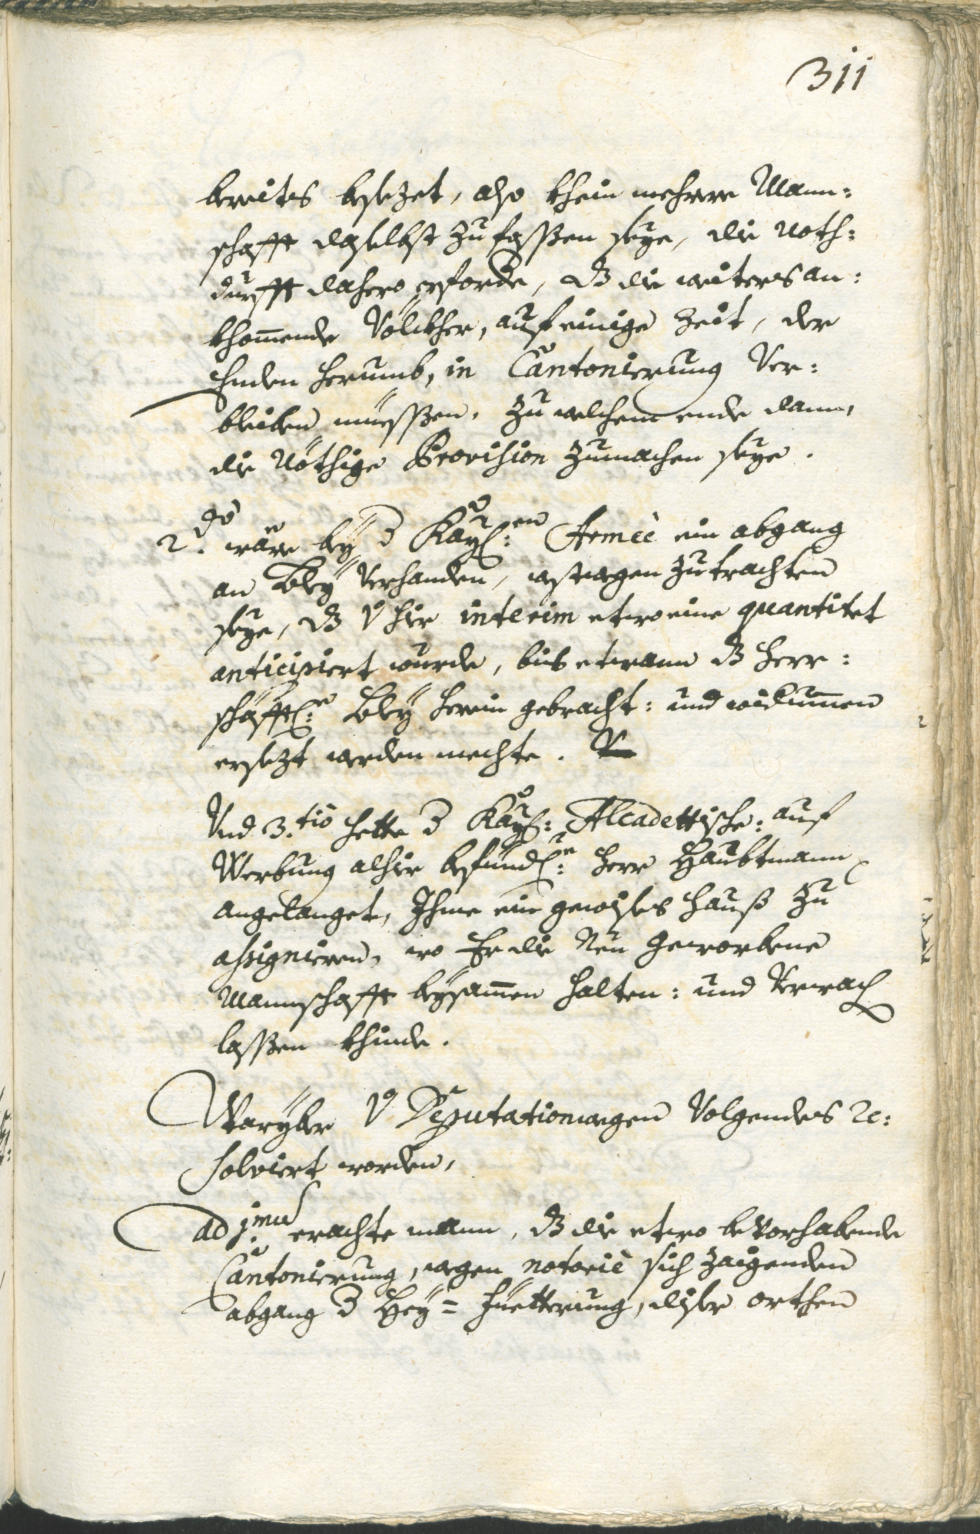 311
bereits besezet, also khein mehrere Mann:
schafft daselbst zu fassen seye, die noth:
durfft dahero erforde, dz die weiters an:
khomende Völckher, auf einige Zeit, der
Enden herumb, in Cantonierung Ver:
bleiben müessen. zu welchem ende dann,
die Nöthige Provision zumachen seye.
2.do wäre bey d Kayl:en Armeè ein abgang
an Bley Verhanden, wesswegen zutrachten
seye, dz hir interim etwo eine quantitet
anticipiert wurde, bis etwann dz herr:
schafftl:e Bley herein gebracht: und widumen
ersezt werden mechte.
Und 3.tio hette d Kayl: Alcadettische: auf
Werbung alhir befündl:e herr Haubtmann
angelanget, Ihme ein gewises hauß zu
assignieren, wo Er die Neu Geworbene
Mannschafft beysamen halten: und Verwach
lassen khinde.
Warüber Deputation wegen Volgendes Re:
solviert worden,
ad j.mu erachte mann, dz die etwo beVorhabende
Cantonierung, wegen notoriè sich zaigenden
abgang d Hey= füetterung, diser orthen